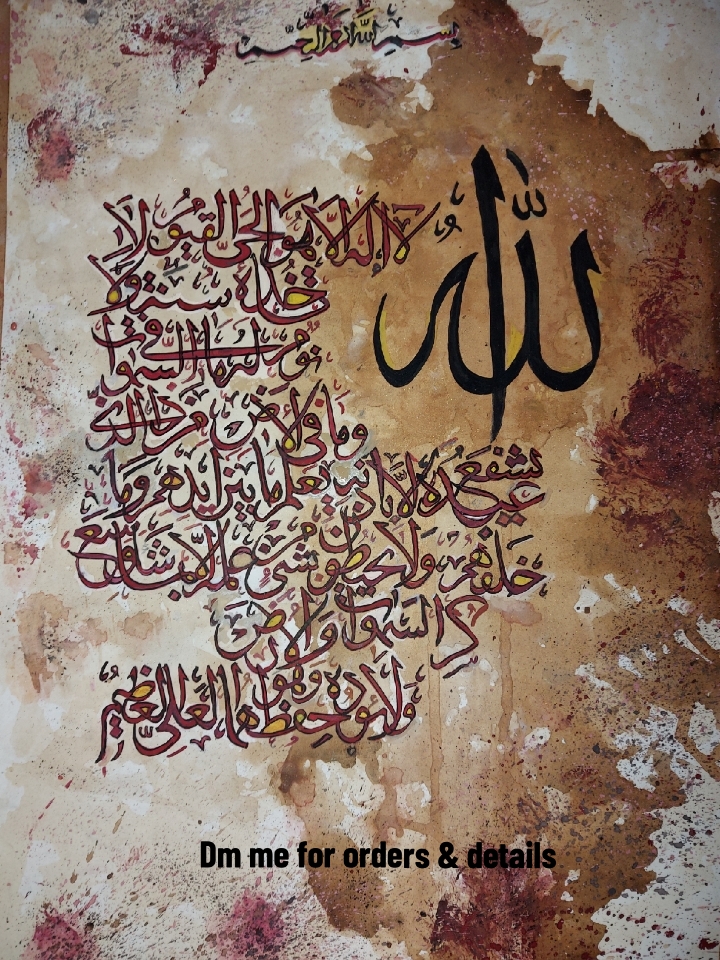 بسم الله الرحمن الرحيم
الله
لا إله إلا هو الحي القيوم لا
تأخذه سنة ولا
نوم له ما في السموات
وما في الأرض من ذا الذي
يشفع عنده إلا بإذنه يعلم ما بين أيديهم وما
خلفهم ولا يحيطون بشئ من علمه إلا بما شاء وسع
السموات والأرض
ولا يؤده حفظهما وهو العلي العظيم
Dm me for orders & details